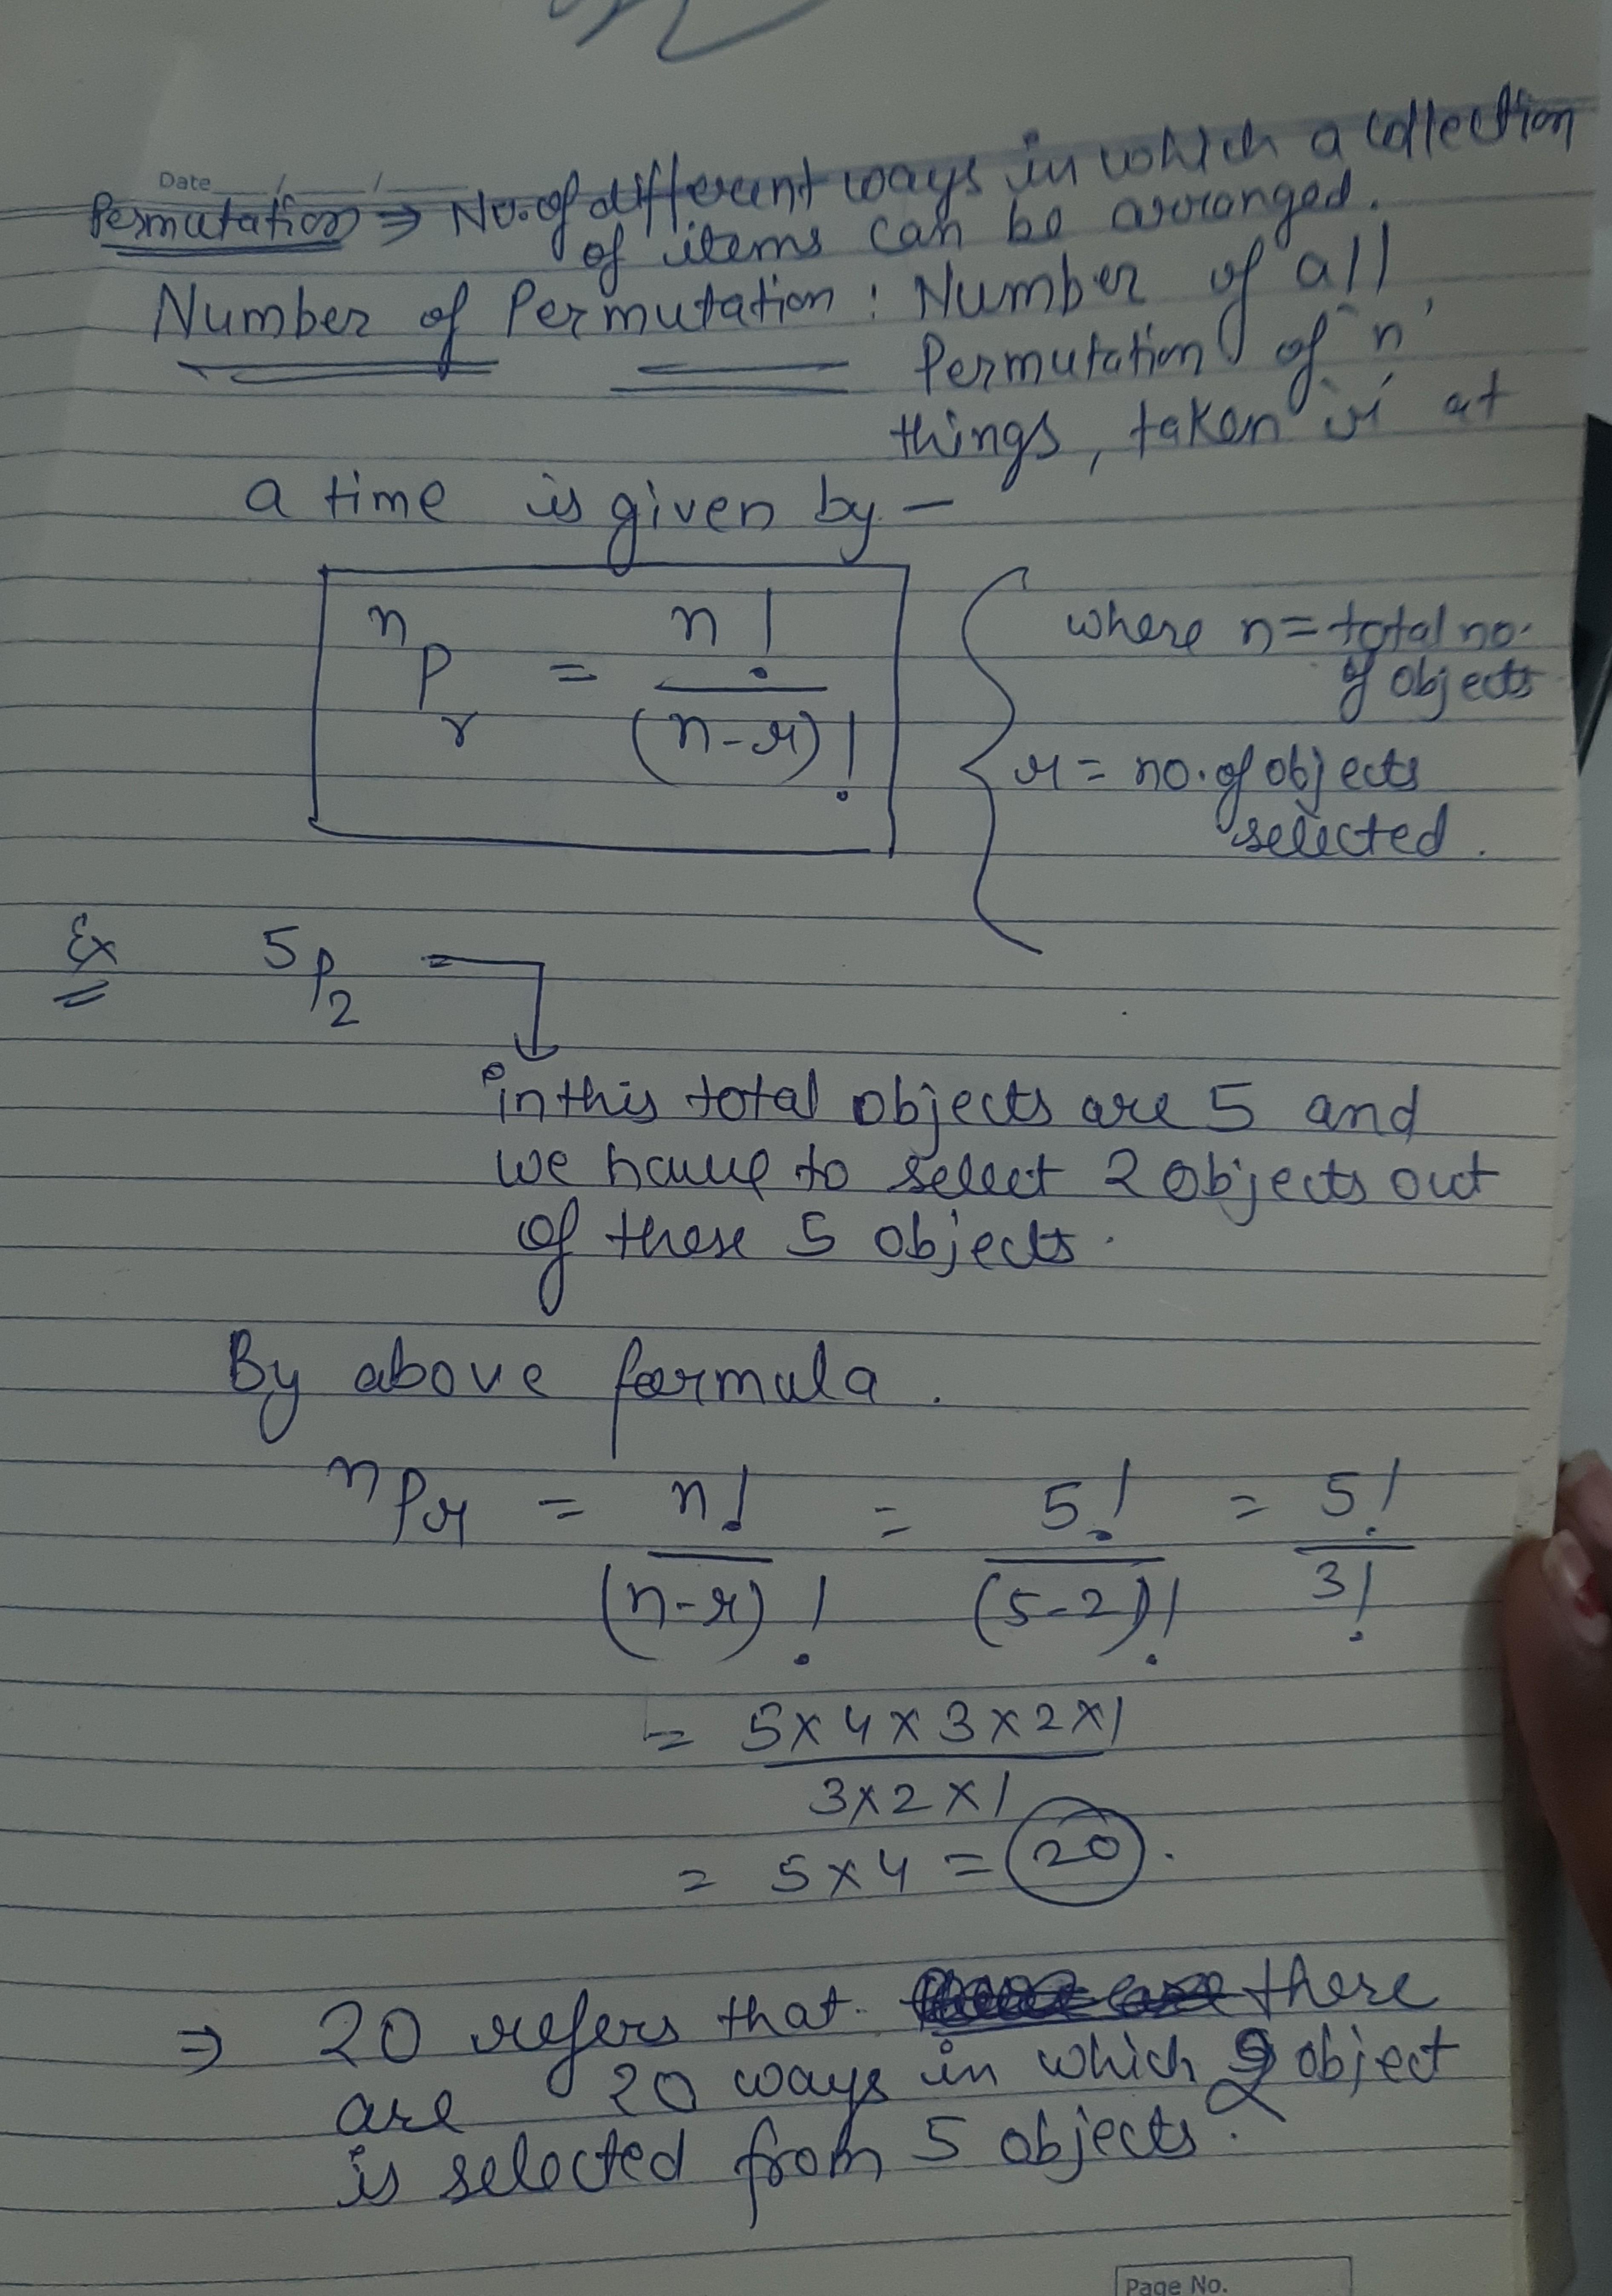 Date / /
Permutation ⇒ No. of different ways in which a collection
of items can be arranged.
Number of Permutation : Number of all
Permutation of 'n'
things, taken 'r' at
a time is given by -
nPr = n! / (n-r)!
where n = total no.
of objects
r = no. of objects
selected.
Ex 5P2 =
in this total objects are 5 and
we have to select 2 objects out
of these 5 objects.
By above formula.
nPr = n! / (n-r)! = 5! / (5-2)! = 5! / 3!
= 5x4x3x2x1 / 3x2x1
= 5x4 = 20.
⇒ 20 refers that there
are 20 ways in which 2 object
is selected from 5 objects.
Page No.